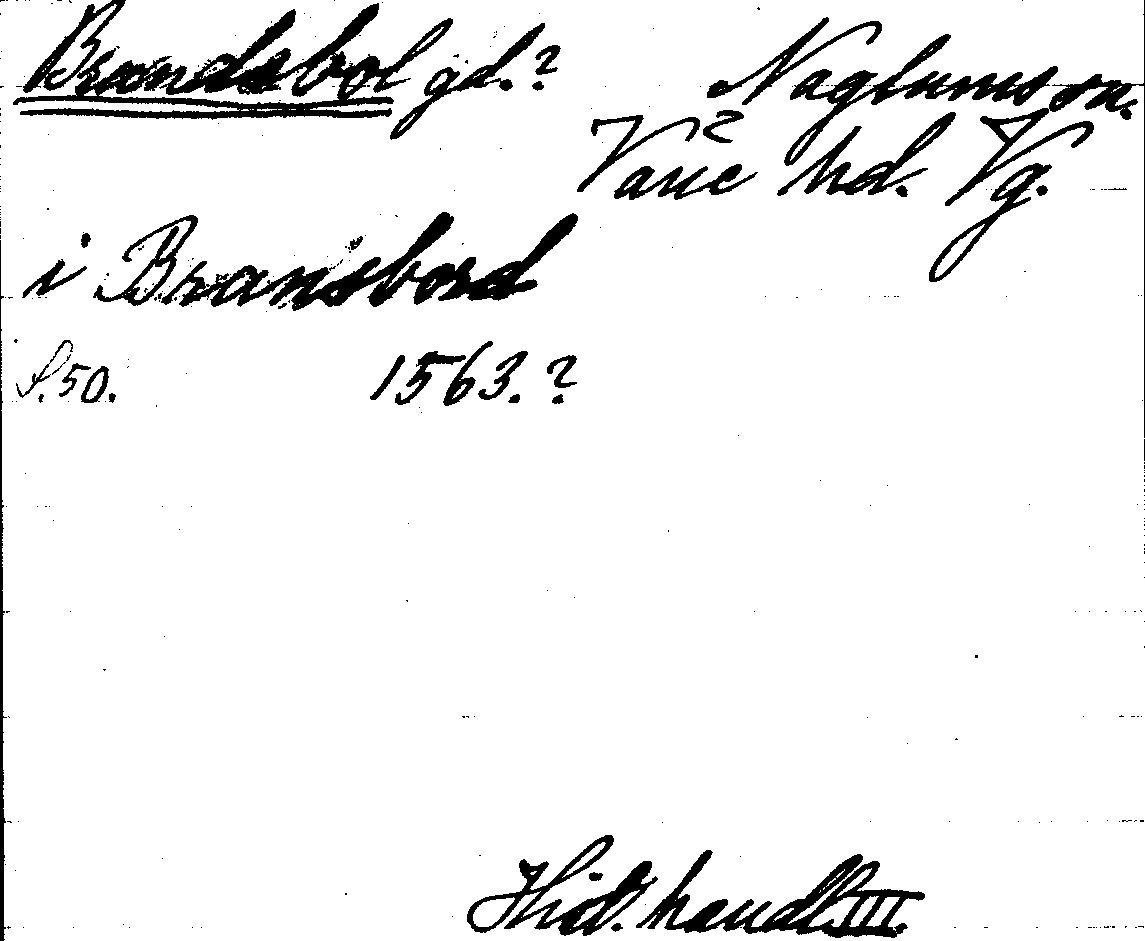 Brandsbol gd.? Naglums sn.
Vane hd. Vg.
i Bransbord
S.50. 1563.?
Hist. handl. III.